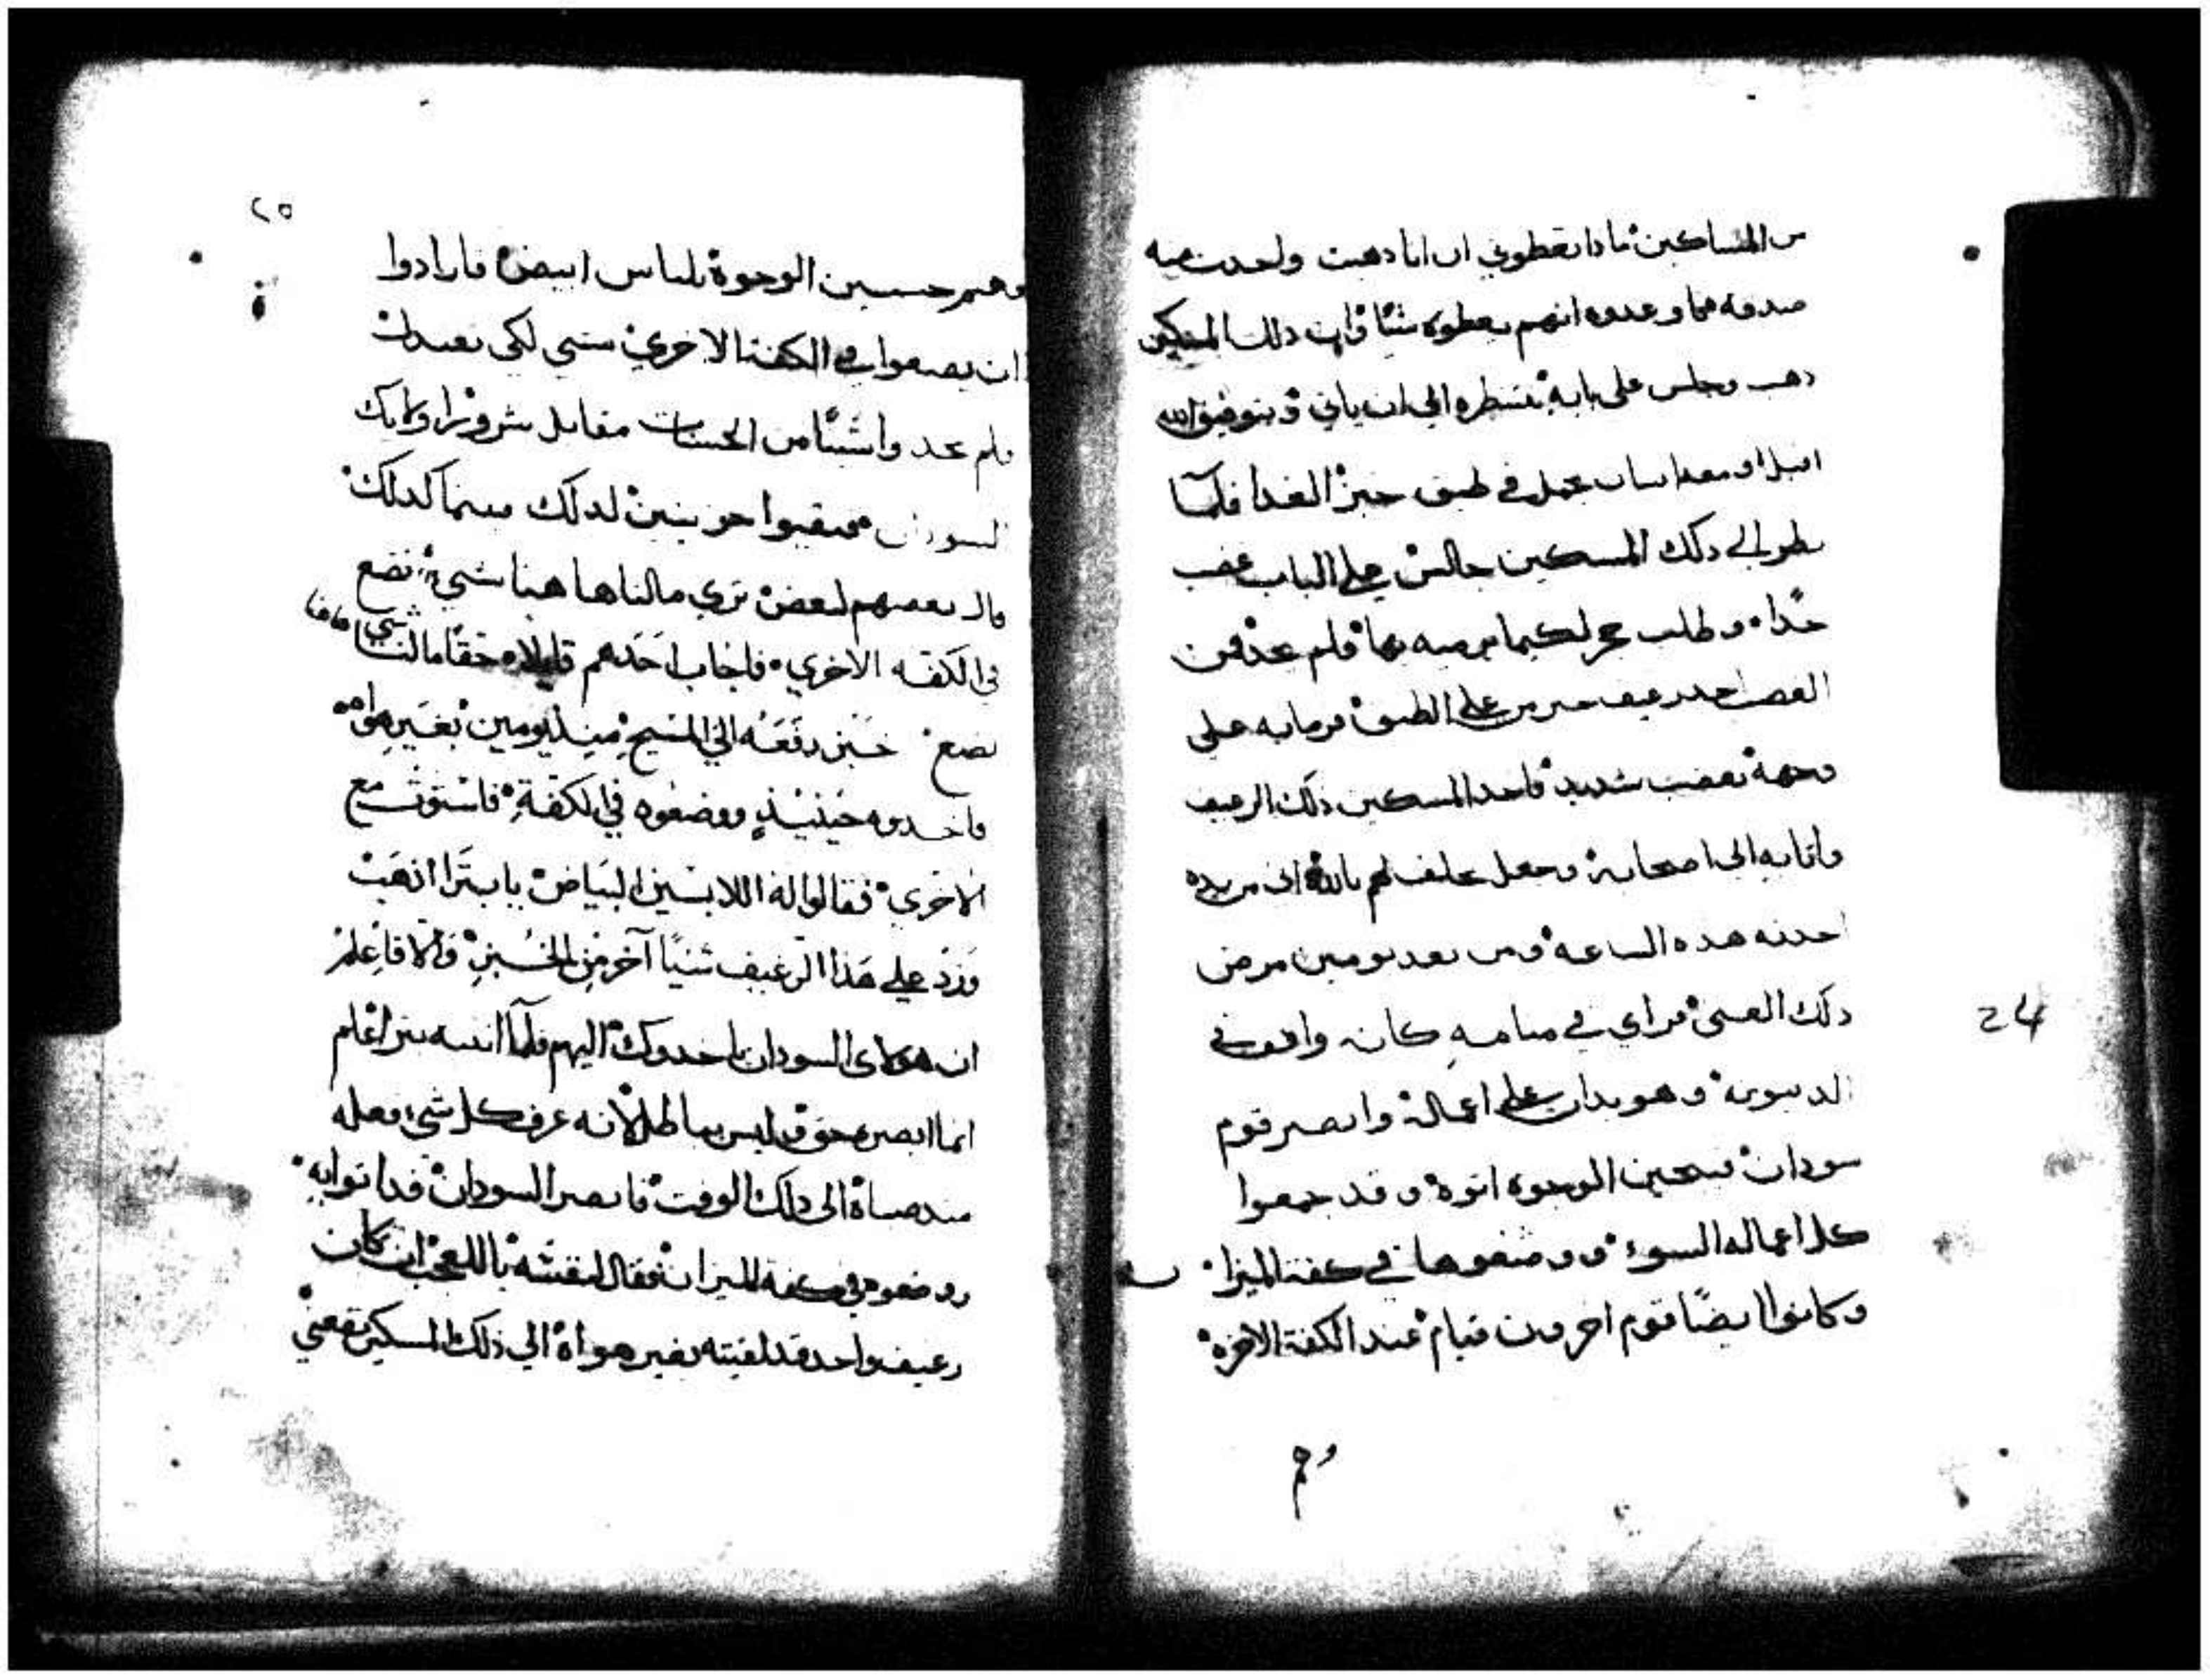 من المساكين ماذا تعطوني ان انا دهبت واخدت منه
صدقه فما وعدوه انهم يعطوه شيًا وان دلك المسكين
دهب وجلس على بابه ينتظره الى ان ياتي وبتوفيق الله
اقبل ومعه انسان يحمل في طبق خبز الغدا فلما
نظر الي دلك المسكين جالس علي الباب غضب
جدًا وطلب حجر لكيما يرميه بها فلم يجد فمن
الغضب اخد رغيف خبز من علي الطبق ورماه به على
وجهه بغضب شديد فاخد المسكين دلك الرغيف
واتا به الى اصحابه وجعل يحلف لهم بالله اني من يده
اخدته هده الساعه ومن بعد يومين مرض
دلك الغني فراي في منامه كانه واقف في
الدينونه وهو يدان علي اعماله وابصر قوم
سودان قبيحين الوجوه اتوه وقد جمعوا
كل اعماله السوء ووضعوها في كفة الميزان
وكانوا ايضًا قوم اخرون قيام عند الكفة الاخره
وهم
24
٢٥
وهم حسين الوجوه بلباس ابيض فارادوا
ان يضعوا في الكفة الاخري شي لكي تعتدل
فلم يجدوا شيًا من الحسنات مقابل شرور اولايك
السودان فبقيوا حزينين لدلك فبينما كدلك
قال بعضهم لبعض تري مالنا هاهنا شي نضع
في الكفه الاخري فاجاب احدهم قايلا حقًا مالنا شي هاهنا
نضع خبز دفعه الي المسيح منذ يومين بغير هواه
فاخدوه حينيذٍ ووضعوه في الكفة فاستوت مع
الاخري فقالوا له اللابسين البياض يا بترا اذهب
وزد علي هذا الرغيف شيًا آخر من الخبز والا فاعلم
ان هولاى السودان ياخدوك اليهم فلما انتبه بترا علم
انما ابصره حق وليس باطل لانه عرف كل شي فعله
مند صباه الى دلك الوقت فابصر السودان قد اتوا به
ووضعوه في كفة الميزان فقال لنفسه يا للعجب ان كان
رغيف واحد قد لقيته بغير هواه الي ذلك المسكين نفعني